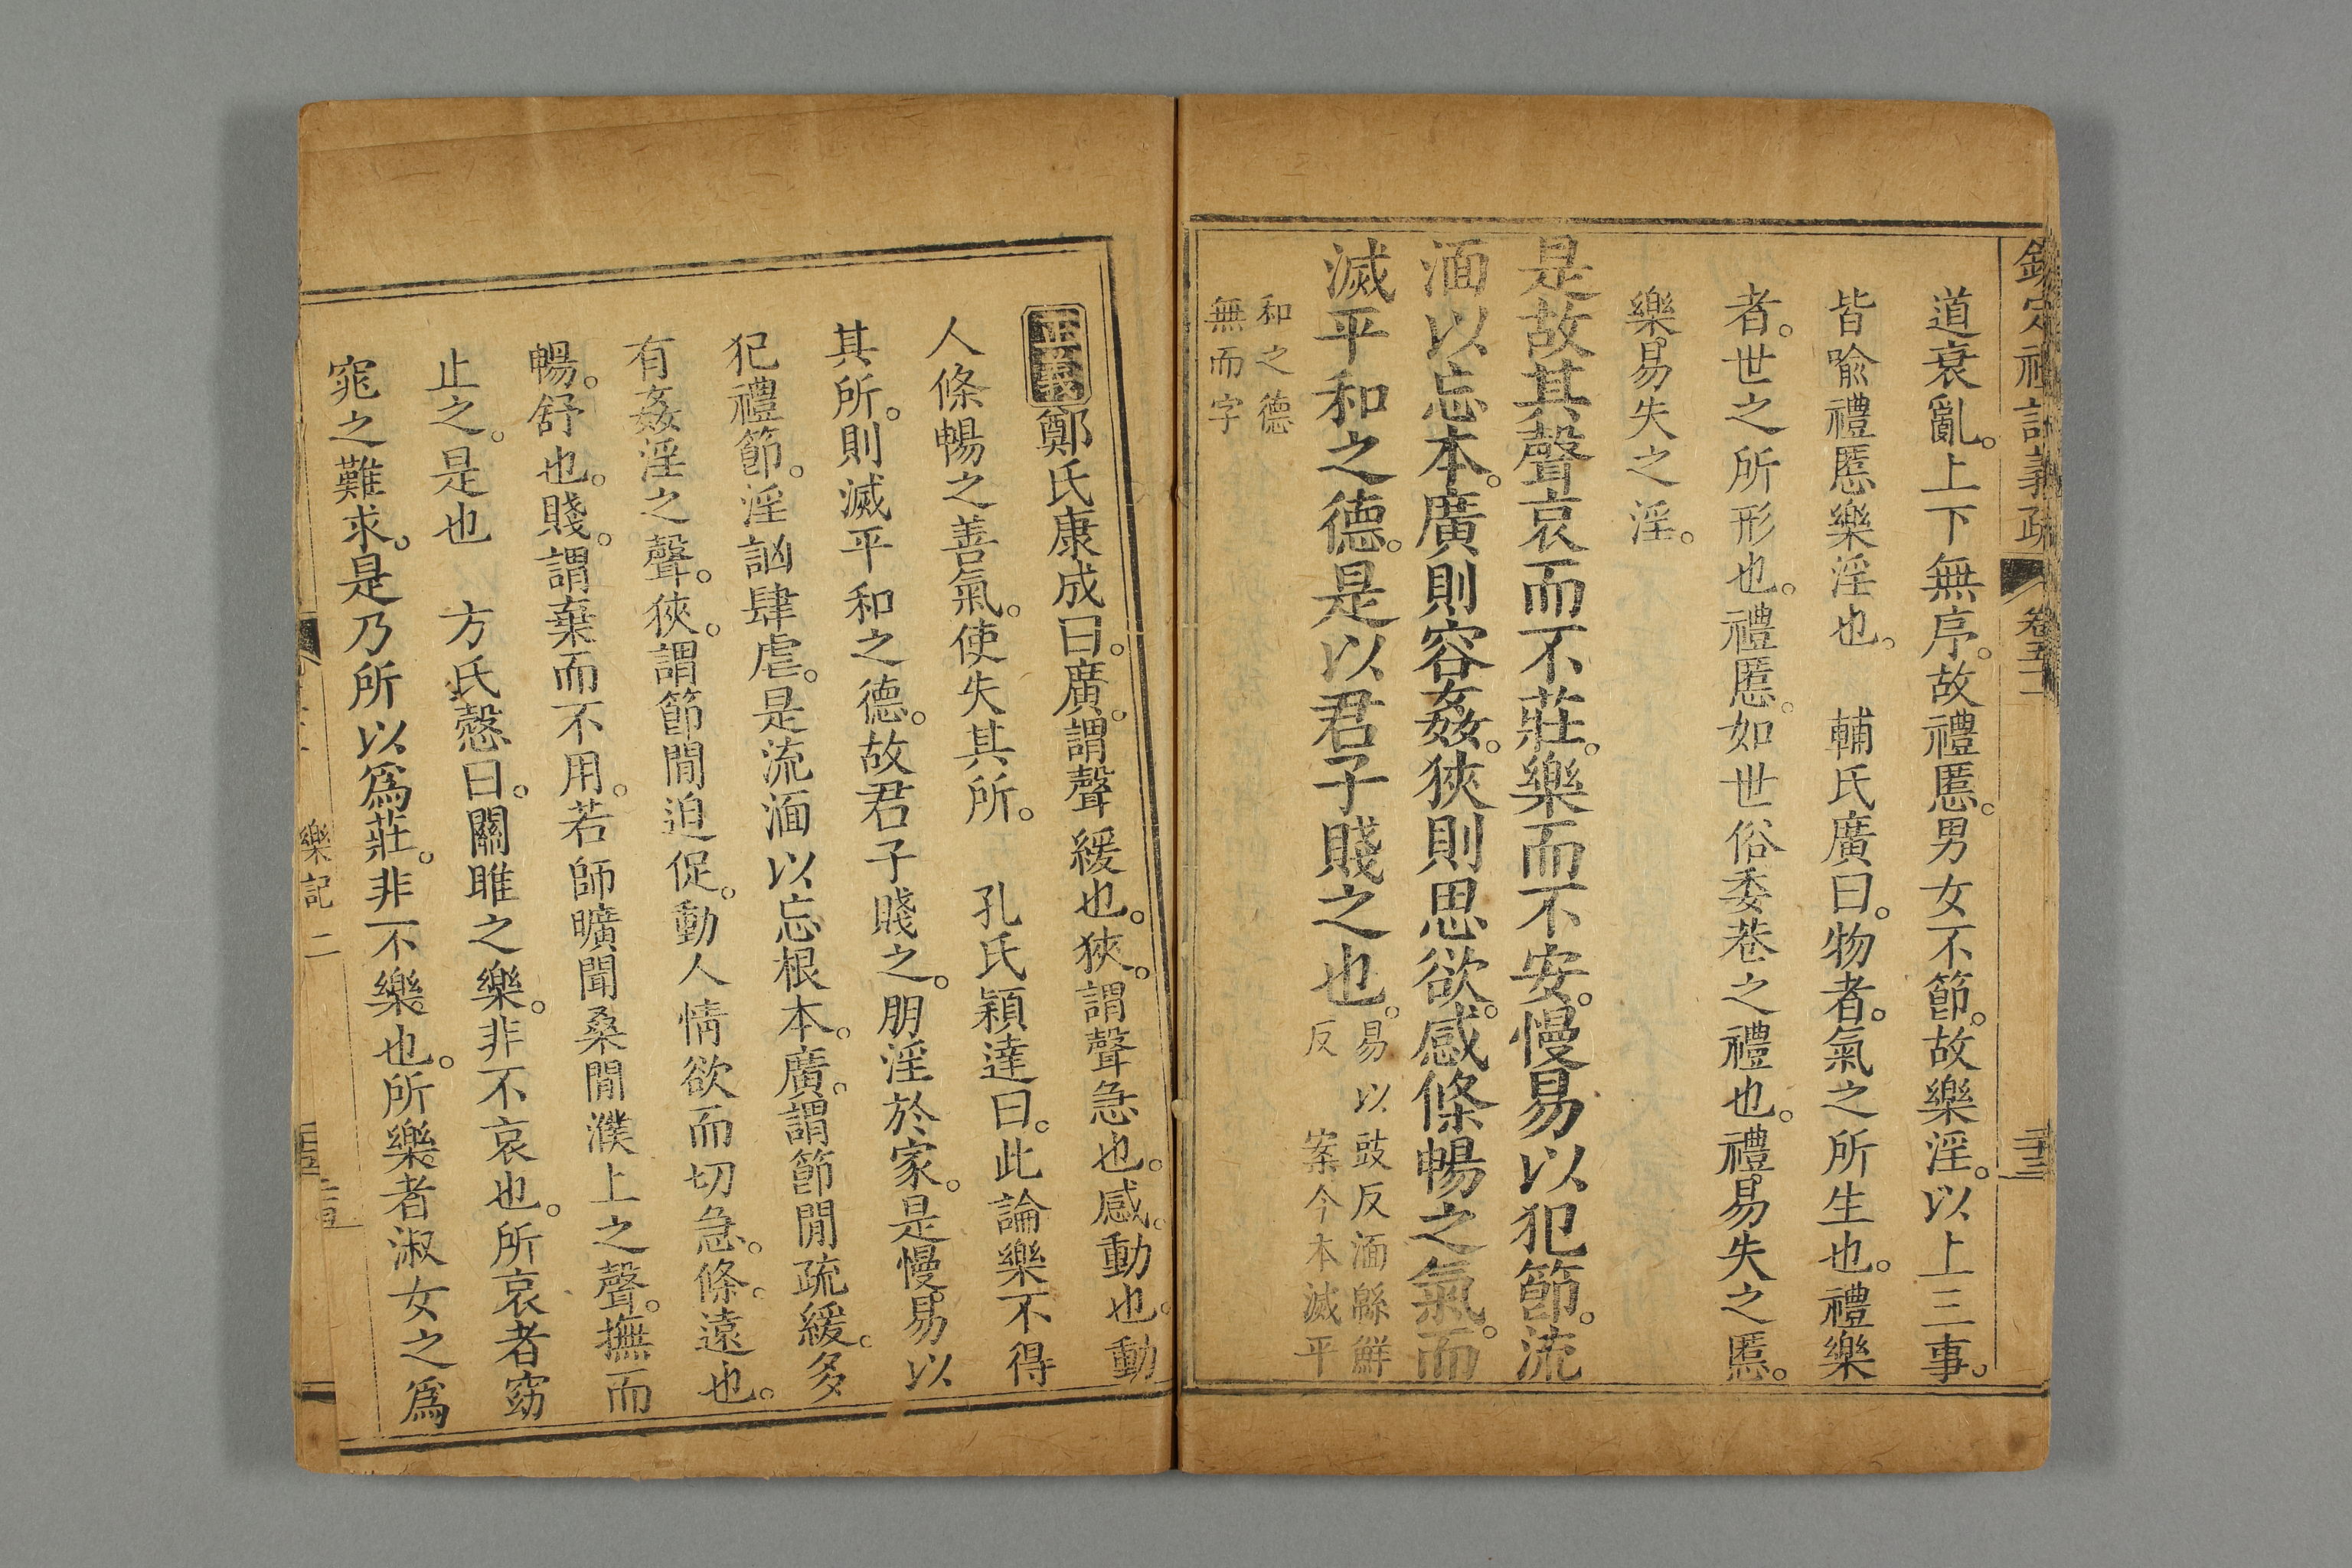 欽定禮記義疏 卷五十一
道衰亂。上下無序。故禮慝。男女不節。故樂淫。以上三事。
皆喩禮慝樂淫也。 輔氏廣曰。物者。氣之所生也。禮樂
者。世之所形也。禮慝。如世俗委巷之禮也。禮易失之慝。
樂易失之淫。
是故其聲哀而不莊。樂而不安。慢易以犯節。流
湎以忘本。廣則容姦。狹則思欲。感條暢之氣。而
滅平和之德。是以君子賤之也。易以豉反湎緜鮮
反 案今本滅平
和之德
無而字
正義鄭氏康成曰。廣。謂聲緩也。狹。謂聲急也。感。動也。動
人條暢之善氣。使失其所。 孔氏穎達曰。此論樂不得
其所。則滅平和之德。故君子賤之。朋淫於家。是慢易以
犯禮節。淫訩肆虐。是流湎以忘根本。廣。謂節間疏緩。多
有姦淫之聲。狹。謂節間迫促。動人情欲而切急。條。遠也。
暢。舒也。賤。謂棄而不用。若師曠聞桑間濮上之聲。撫而
止之。是也 方氏慤曰。關雎之樂。非不哀也。所哀者窈
窕之難求。是乃所以爲莊。非不樂也。所樂者淑女之爲
樂記 二